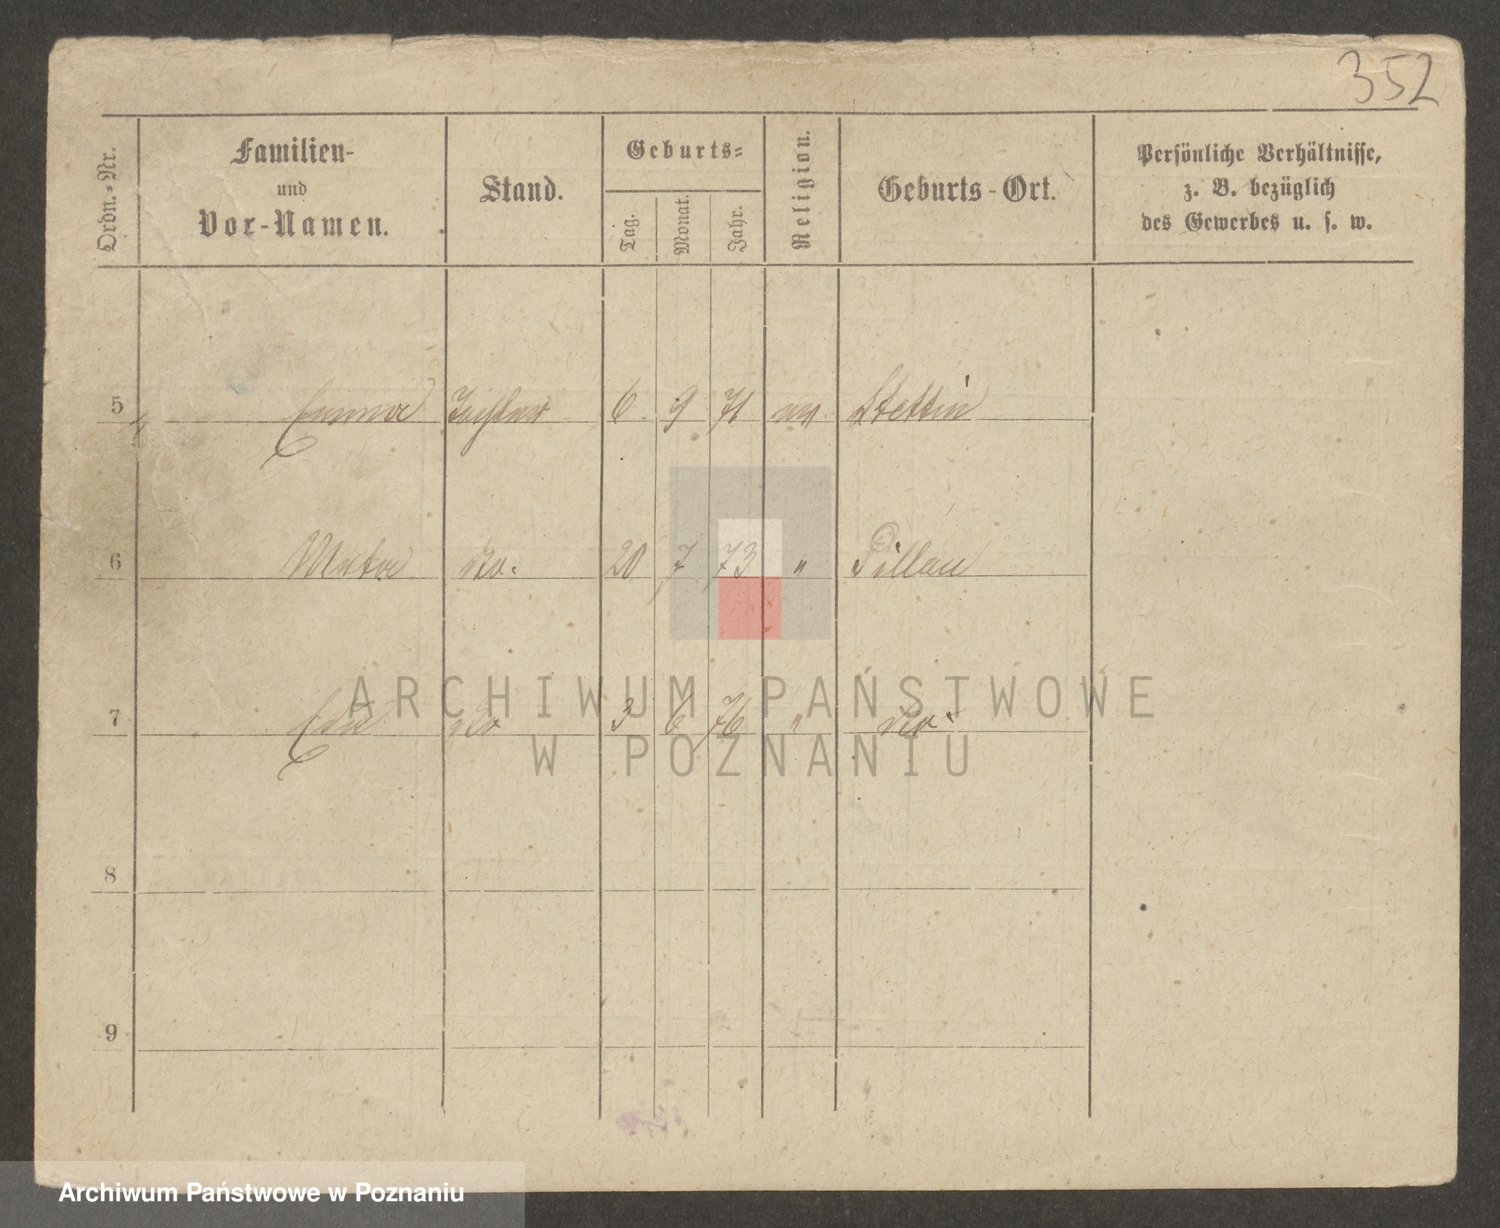 352
Ordn.-Nr.
Familien-
und
Vor-Namen.
Stand.
Geburts-
Tag.
Monat.
Jahr.
Religion.
Geburts-Ort.
Persönliche Verhältnisse,
z. B. bezüglich
des Gewerbes u. s. w.
5 Emma Tochter 6 9 71 ev. Stettin
6 do. 20 7 73 " Pillau
7 do 3 6 76 " do.
8
9
ARCHIWUM PAŃSTWOWE
W POZNANIU
Archiwum Państwowe w Poznaniu